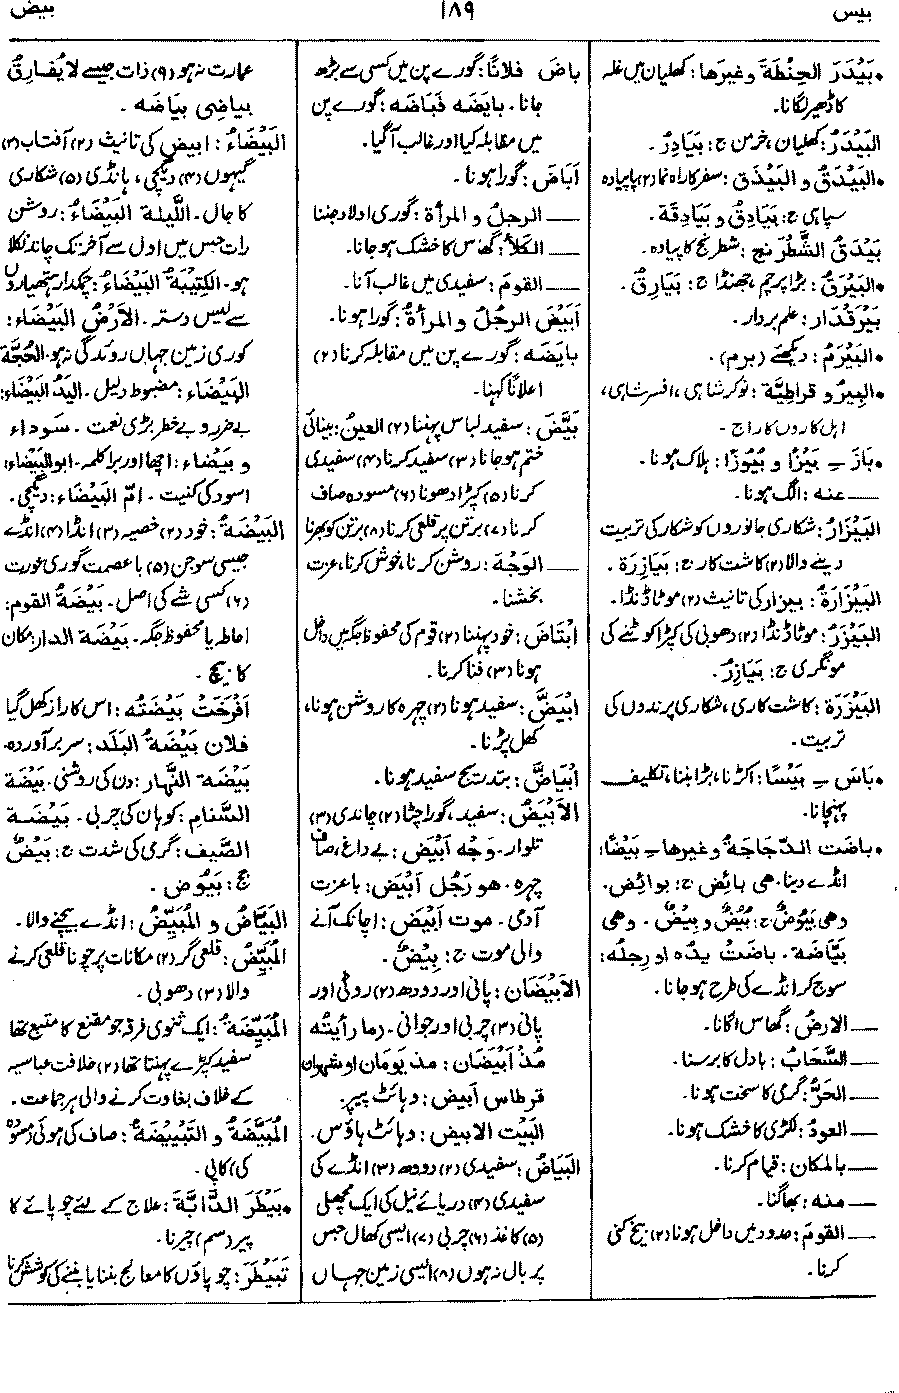 بیس ۱۸۹ بیض
•بَیْدَرَ الحِنْطَةَ وغیرَها: کھلیان میں غلہ
کا ڈھیر لگانا۔
البَیْدَرُ: کھلیان، خرمن ج: بَیَادِرُ۔
•البَیْدَقُ و البَیْذَق: سفر کا راہ نما (۲) پاپیادہ
سپاہی ج: بَیَادِقُ و بَیَادِقَة۔
بَیْدَقُ الشَّطْرَنج: شطرنج کا پیادہ۔
•البَیْرَقُ: بڑا پرچم، جھنڈا ج: بَیَارِقُ۔
بَیْرَقْدَار: علم بردار۔
•البَیْرَم: دیکھیے (برم)۔
•البِیرُو قراطِیَّة: نوکر شاہی، افسر شاہی،
اہل کاروں کا راج۔
•بَازَ ـِ بَیْزًا و بُیُوزًا: ہلاک ہونا۔
ـــ عنه: الگ ہونا۔
البَیْزَارُ: شکاری جانوروں کو شکار کی تربیت
دینے والا (۲) کاشت کار ج: بَیَازِرَة۔
البَیْزَارَةُ: بیزار کی تانیث (۲) موٹا ڈنڈا۔
البَیْزَرُ: موٹا ڈنڈا (۲) دھوبی کی کپڑا کوٹنے کی
مونگری ج: بَیَازِرُ۔
البَیْزَرَة: کاشت کاری، شکاری پرندوں کی
تربیت۔
•بَاسَ ـِ بَیْسًا: اکڑنا، بڑا بننا، تکلیف
پہنچانا۔
•باضَت الدَّجاجَةُ وغیرها ـِ بَیْضًا:
انڈے دینا۔ هی بائِض ج: بوائِض۔
وهی بَیُوضٌ ج: بُیُضٌ و بِیضٌ۔ وهی
بَیَّاضَة۔ باضَتْ یدُه او رِجلُه:
سوج کر انڈے کی طرح ہو جانا۔
ـــ الارضُ: گھاس اگانا۔
ـــ السَّحَابُ: بادل کا برسنا۔
ـــ الحَرُّ: گرمی کا سخت ہونا۔
ـــ العودُ: لکڑی کا خشک ہونا۔
ـــ بالمکان: قیام کرنا۔
ـــ منه: بھاگنا۔
ـــ القومَ: حدود میں داخل ہونا (۲) بیخ کنی
کرنا۔
باضَ فلانًا: گورے پن میں کسی سے بڑھ
جانا۔ بایَضَه فَبَاضَه: گورے پن
میں مقابلہ کیا اور غالب آگیا۔
اَبَاضَ: گورا ہونا۔
ـــ الرجلُ و المرأة: گوری اولاد جننا
ـــ الکَلَأُ: گھاس کا خشک ہو جانا۔
ـــ القومَ: سفیدی میں غالب آنا۔
اَبْیَضَ الرجلُ و المرأةُ: گورا ہونا۔
بایَضَه: گورے پن میں مقابلہ کرنا (۲)
اعلانًا کہنا۔
بَیَّضَ: سفید لباس پہننا (۲) العینُ: بینائی
ختم ہو جانا (۳) سفید کرنا (۴) سفیدی
کرنا (۵) کپڑا دھونا (۶) مسودہ صاف
کرنا (۷) برتن پر قلعی کرنا (۸) برتن کو بھرنا
ـــ الوَجْهَ: روشن کرنا، خوش کرنا، عزت
بخشنا۔
ابْتَاضَ: خود پہننا (۲) قوم کی محفوظ جگہیں داخل
ہونا (۳) فنا کرنا۔
ابْیَضَّ: سفید ہونا (۲) چہرہ کا روشن ہونا،
کھل پڑنا۔
ابْیَاضَّ: بتدریج سفید ہونا۔
الاَبْیَضُ: سفید، گورا چٹا (۲) چاندی (۳)
تلوار۔ وَجْه اَبْیَض: بے داغ، صاف
چہرہ۔ هو رَجُل اَبْیَض: باعزت
آدمی۔ موت اَبْیَض: اچانک آنے
والی موت ج: بِیْضٌ۔
الاَبْیَضَان: پانی اور دودھ (۲) روٹی اور
پانی (۳) چربی اور جوانی۔ (ما رأیتُه
مُذْ اَبْیَضَان: مذ یومان او شهران
قرطاس اَبیض: وہائٹ پیپر۔
البَیت الابیض: وہائٹ ہاؤس۔
البَیَاضُ: سفیدی (۲) دودھ (۳) انڈے کی
سفیدی (۴) دریائے نیل کی ایک مچھلی
(۵) کاغذ (۶) چربی (۷) ایسی کھال جس
پر بال نہ ہوں (۸) ایسی زمین جہاں
عمارت نہ ہو (۹) ذات جیسے لا یُفَارِقُ
بیاضِی بیاضَه۔
البَیْضَاءُ: ابیض کی تانیث (۲) آفتاب (۳)
گیہوں (۴) دیگچی، ہانڈی (۵) شکاری
کا جال۔ اللَّیلَة البَیْضَاءُ: روشن
رات جس میں اول سے آخر تک چاند نکلا
ہو۔ الکَتِیْبَةُ البَیْضَاءُ: چمکدار ہتھیاروں
سے لیس دستہ۔ الاَرْضُ البَیْضَاء:
کوری زمین جہاں روندگی نہ ہو۔ الحُجَّة
البَیْضَاء: مضبوط دلیل۔ الیدُ البَیْضَاء:
بے ضرر و بے خطر بڑی نعمت۔ سَوداء
و بَیْضَاء: اچھا اور برا کلمہ۔ ابوالبَیْضَاء:
اسود کی کنیت۔ امّ البَیْضَاء: دیگچی۔
البَیْضَةُ: خود (۲) خصیہ (۳) انڈا (۴) انڈے
جیسی سوجن (۵) باعصمت گوری عورت
(۶) کسی شے کی اصل۔ بَیْضَةُ القوم:
احاطہ یا محفوظ جگہ۔ بَیْضَة الدار: مکان
کا بیچ۔
اَفْرَخَتْ بَیْضَتُه: اس کا راز کھل گیا
فلان بَیْضَةُ البَلَد: سر بر آوردہ
بَیْضَة النَّهار: دن کی روشنی۔ بَیْضَة
السَّنام: کوہان کی چربی۔ بَیْضَة
الصَّیف: گرمی کی شدت ج: بَیْضٌ
جج: بُیُوض۔
البَیَّاضُ و المُبَیِّضُ: انڈے بیچنے والا۔
المُبَیِّضُ: قلعی گر (۲) مکانات پر چونا قلعی کرنے
والا (۳) دھوبی۔
المُبَیِّضَةُ: ایک ثنوی فرقہ جو مقنع کا متبع تھا
سفید کپڑے پہنتا تھا (۲) خلافت عباسیہ
کے خلاف بغاوت کرنے والی ہر جماعت۔
المُبَیَّضَةُ و التَّبْیِیضَةُ: صاف کی ہوئی (مسودہ
کی) کاپی۔
•بَیْطَرَ الدَّابَّةَ: علاج کے لئے چوپائے کا
پیر (سم) چیرنا۔
تَبَیْطَرَ: چوپاؤں کا معالج بننا یا بننے کی کوشش کرنا